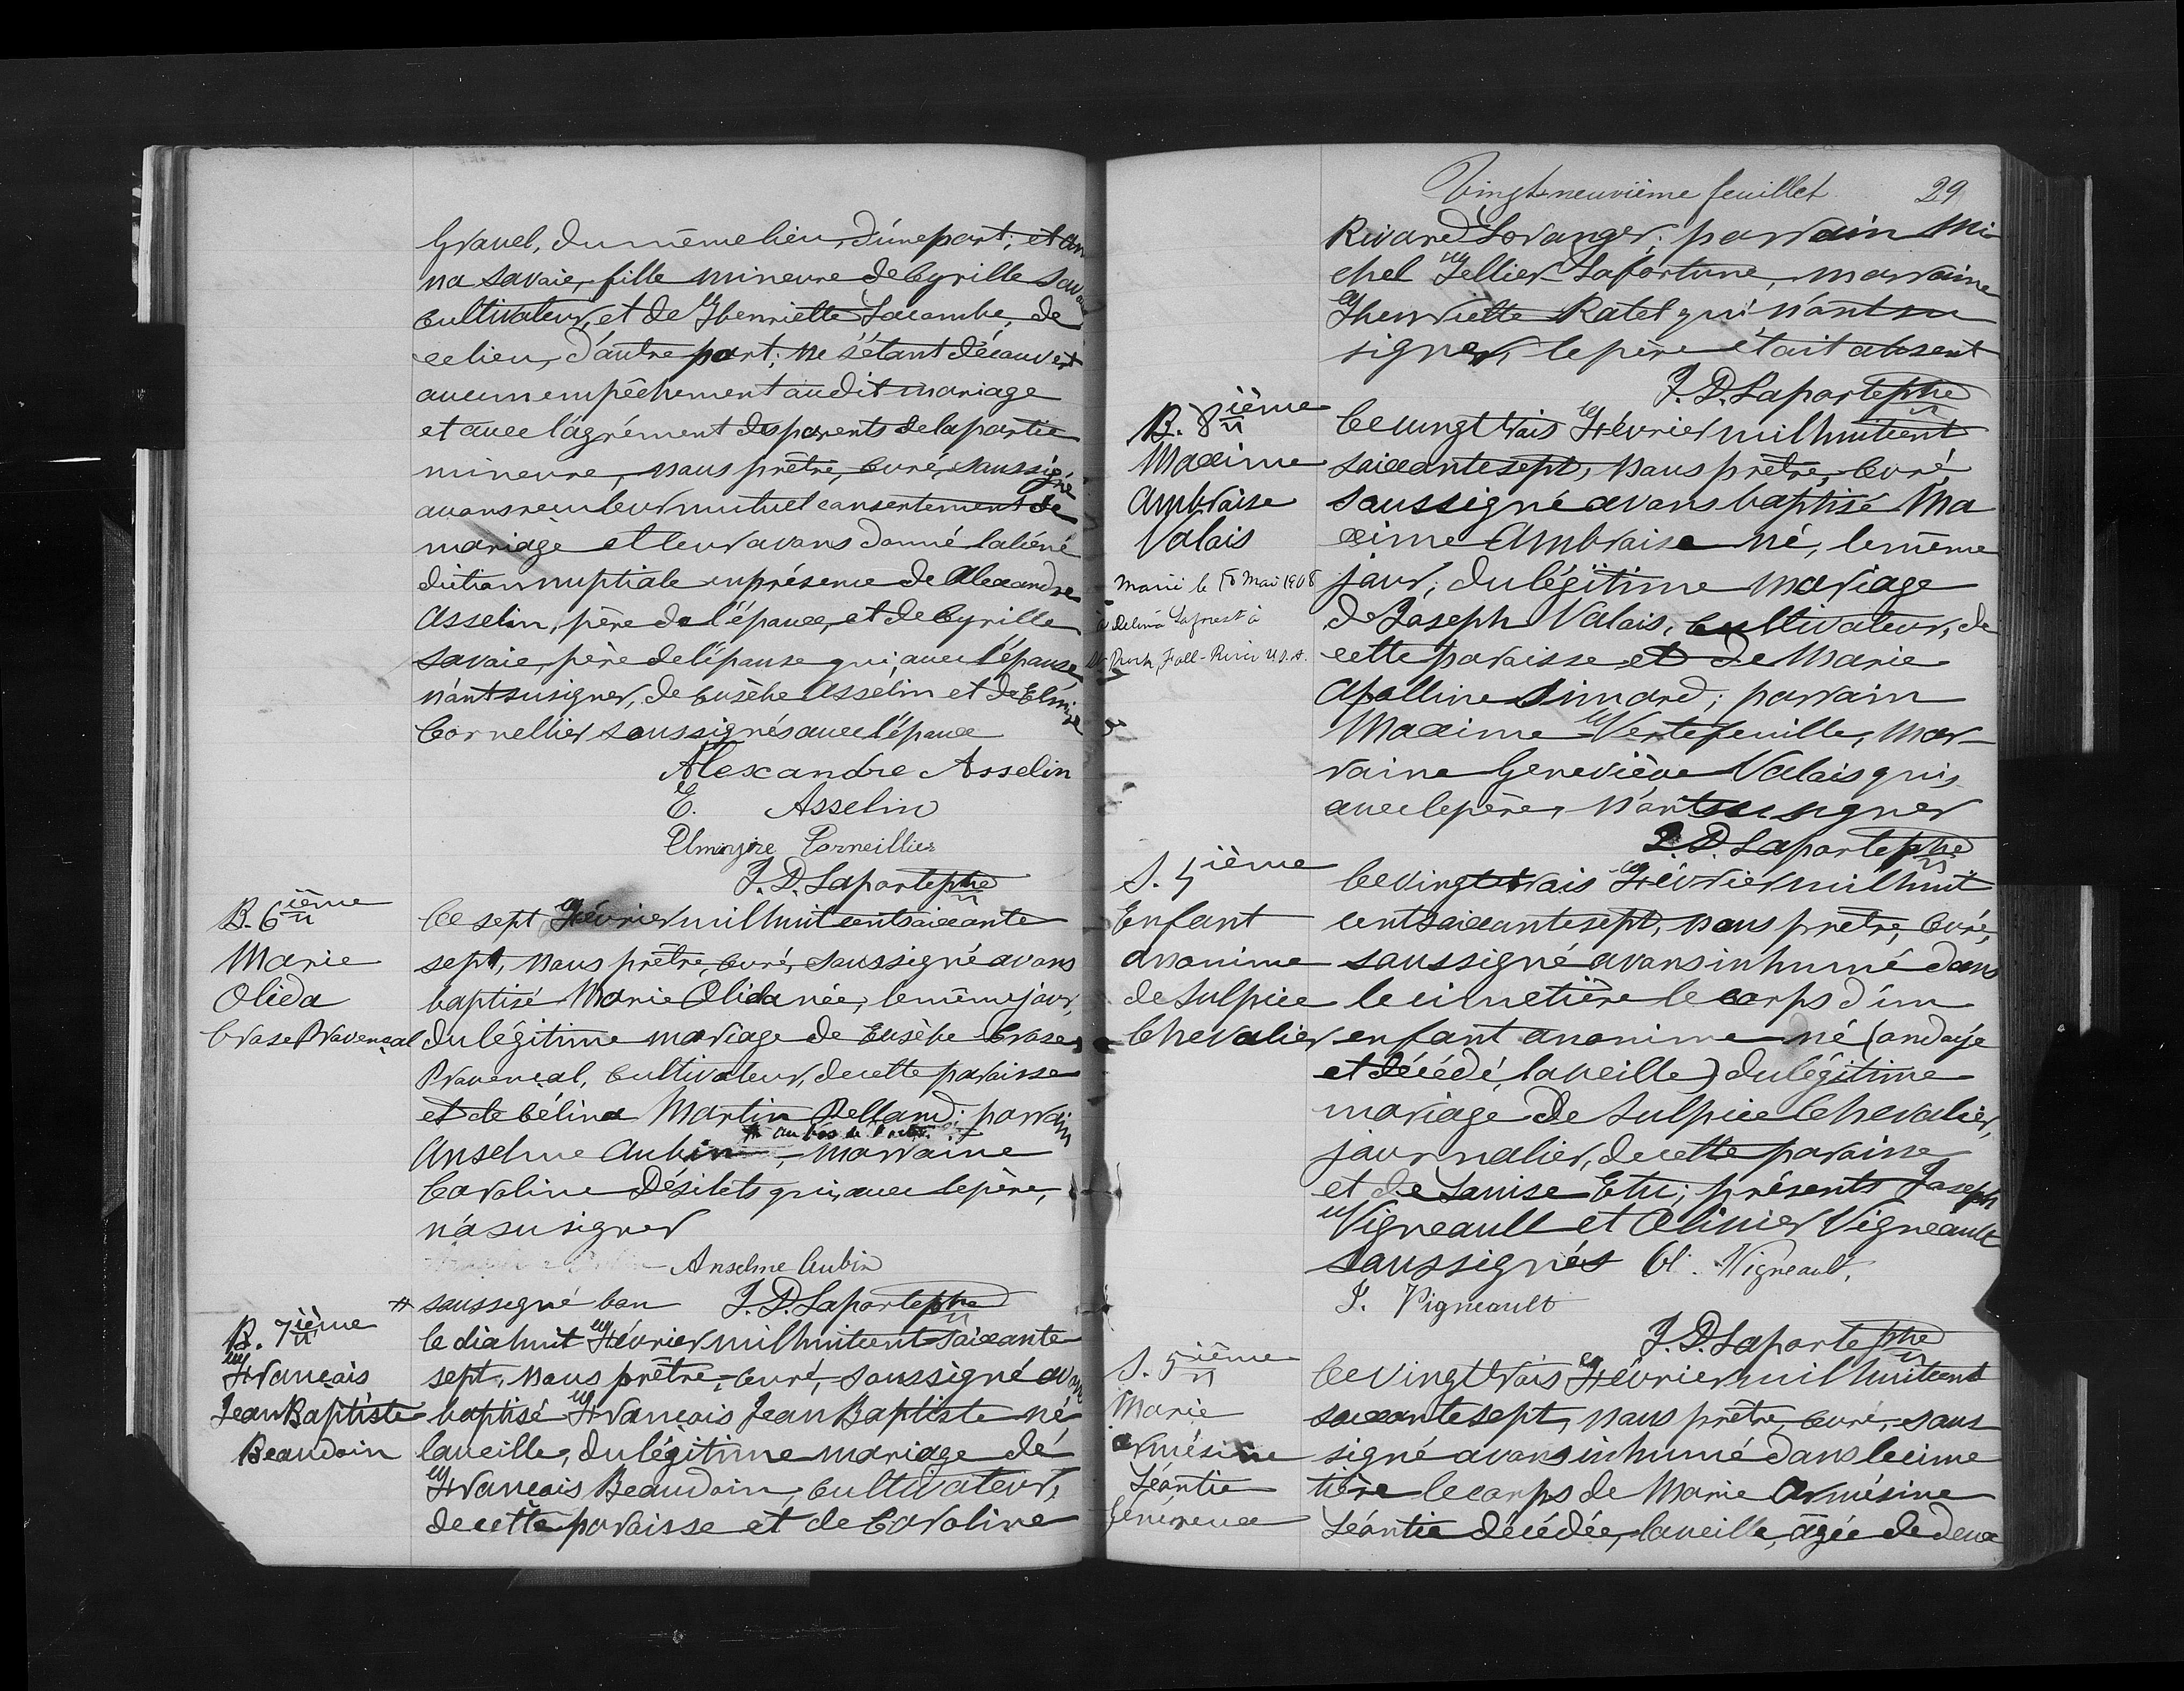 Gravel, du même lieu, d'une part; et An
na Savoie, fille mineure de Cyrille Savoie
Cultivateur, et de Henriette Lacombe, de
ce lieu, d'autre part; ne s'étant découvert
aucun empêchement au dit mariage
et avec l'agrément des parents de la partie
mineure, nous prêtre, curé, soussigné
avons reçu leur mutuel consentement de
mariage et leur avons donné la béné
diction nuptiale en présence de Alexandre
Asselin, père de l'époux, et de Cyrille
Savoie, père de l'épouse qui, avec l'épouse,
n'ont su signer, de Eusèbe Asselin et de
Cornellier soussignés avec l'époux
Alexandre Asselin
E. Asselin
Corneillier
J. D. Laporte ptre
B. 6ième
Marie
Olida
Brase Provençal
Ce sept Février mil huit cent soixante
sept, nous prêtre, curé, soussigné avons
baptisé Marie Olida née, le même jour,
du légitime mariage de Eusèbe Brase
Provençal, cultivateur, de cette paroisse
et de Célina Martin Pelland; parrain
# au bas de l'acte
Anselme Aubin, marraine
Caroline Désilets qui, avec le père,
n'a su signer
Anselme Aubin
# soussigné bon J. D. Laporte ptre
B. 7ième
François
Jean Baptiste
Beaudoin
Le dix huit Février mil huit cent soixante
sept, nous prêtre, curé, soussigné avons
baptisé François Jean Baptiste né
la veille, du légitime mariage de
François Beaudoin, cultivateur,
de cette paroisse et de Caroline
Vingt-neuvième feuillet 29
Rivard Loranger; parrain Mi
chel Tellier Lafortune, marraine
Henriette Ratel qui n'ont su
signer, le père était absent
J. D. Laporte ptre
B. 8ième
Maxime
Ambroise
Valois
Marié le 18 Mai 1908
à Delina Laforest à
St Roch, Fall-River U.S.A.
Ce vingt trois Février mil huit cent
soixante sept, nous prêtre, curé,
soussigné avons baptisé Ma
xime Ambroise né, le même
jour, du légitime mariage
de Joseph Valois, cultivateur, de
cette paroisse et de Marie
Apolline Simard; parrain
Maxime Vertefeuille, mar-
raine Geneviève Valois qui,
avec le père, n'ont su signer
J. D. Laporte ptre
S. 4ième
Enfant
anonime
de Sulpice
Chevalier
Ce vingt trois Février mil huit
cent soixante sept, nous prêtre, curé,
soussigné avons inhumé dans
le cimetière le corps d'un
enfant anonime né (ondoyé
et décédé, la veille) du légitime
mariage de Sulpice Chevalier,
journalier, de cette paroisse
et de Louise Etu; présents Joseph
Vigneault et Olivier Vigneault
soussignés Ol. Vigneault,
J. Vigneault
J. D. Laporte ptre
S. 5ième
Marie
Armésine
Léontie
Généreux
Ce vingt trois Février mil huit cent
soixante sept, nous prêtre, curé, sous
signé avons inhumé dans le cime
tière le corps de Marie Armésine
Léontie décédée, la veille, âgée de deux